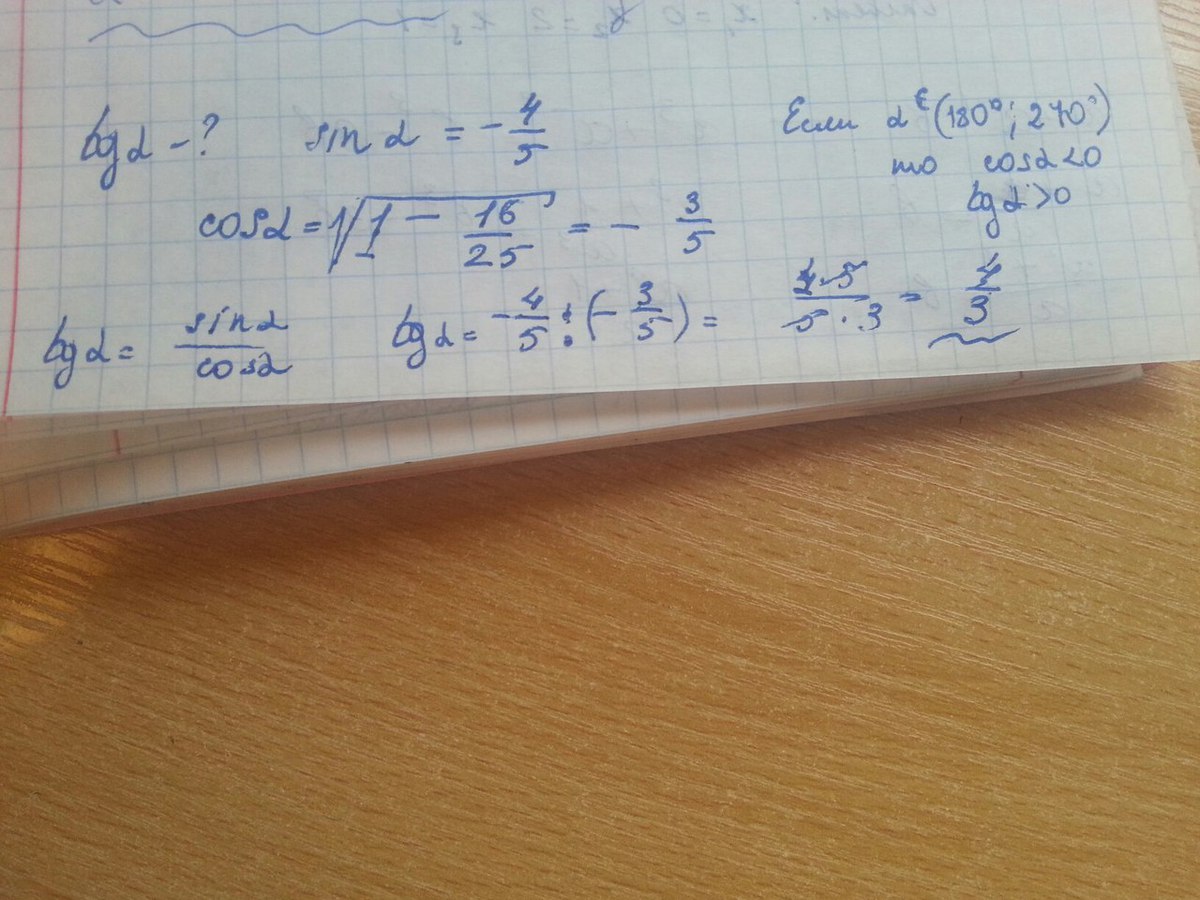 tg α - ? sin α = - 4/5 Если α ∈ (180°; 270°)
то cos α < 0
tg α > 0
cos α = √1 - 16/25 = - 3/5
tg α = sin α / cos α tg α = - 4/5 : (- 3/5) = 4·5 / 5·3 = 4/3